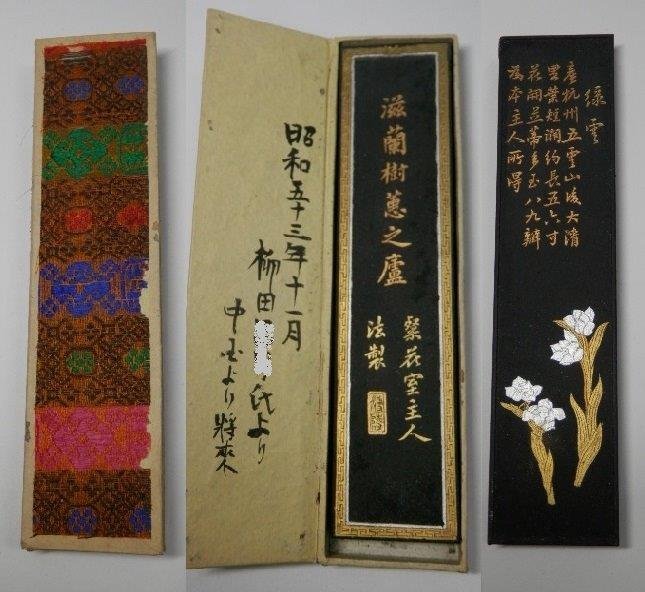 昭和五十三年十一月
田
氏より
中国より将来
滋蘭樹蕙之廬
粲花室主人
法製
綠雲
產杭州五雲山後大清
里葉短濶約長五六寸
花開並蒂多至八九瓣
為本主人所得